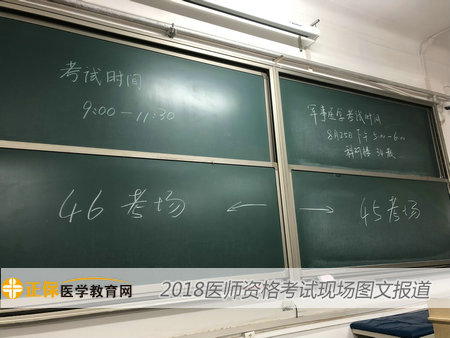 考试时间
9:00-11:30
军事医学考试时间
8月25日 下午 5:00-6:00
科研楼 3教
46 考场 ← → 45考场
正保医学教育网 2018医师资格考试现场图文报道